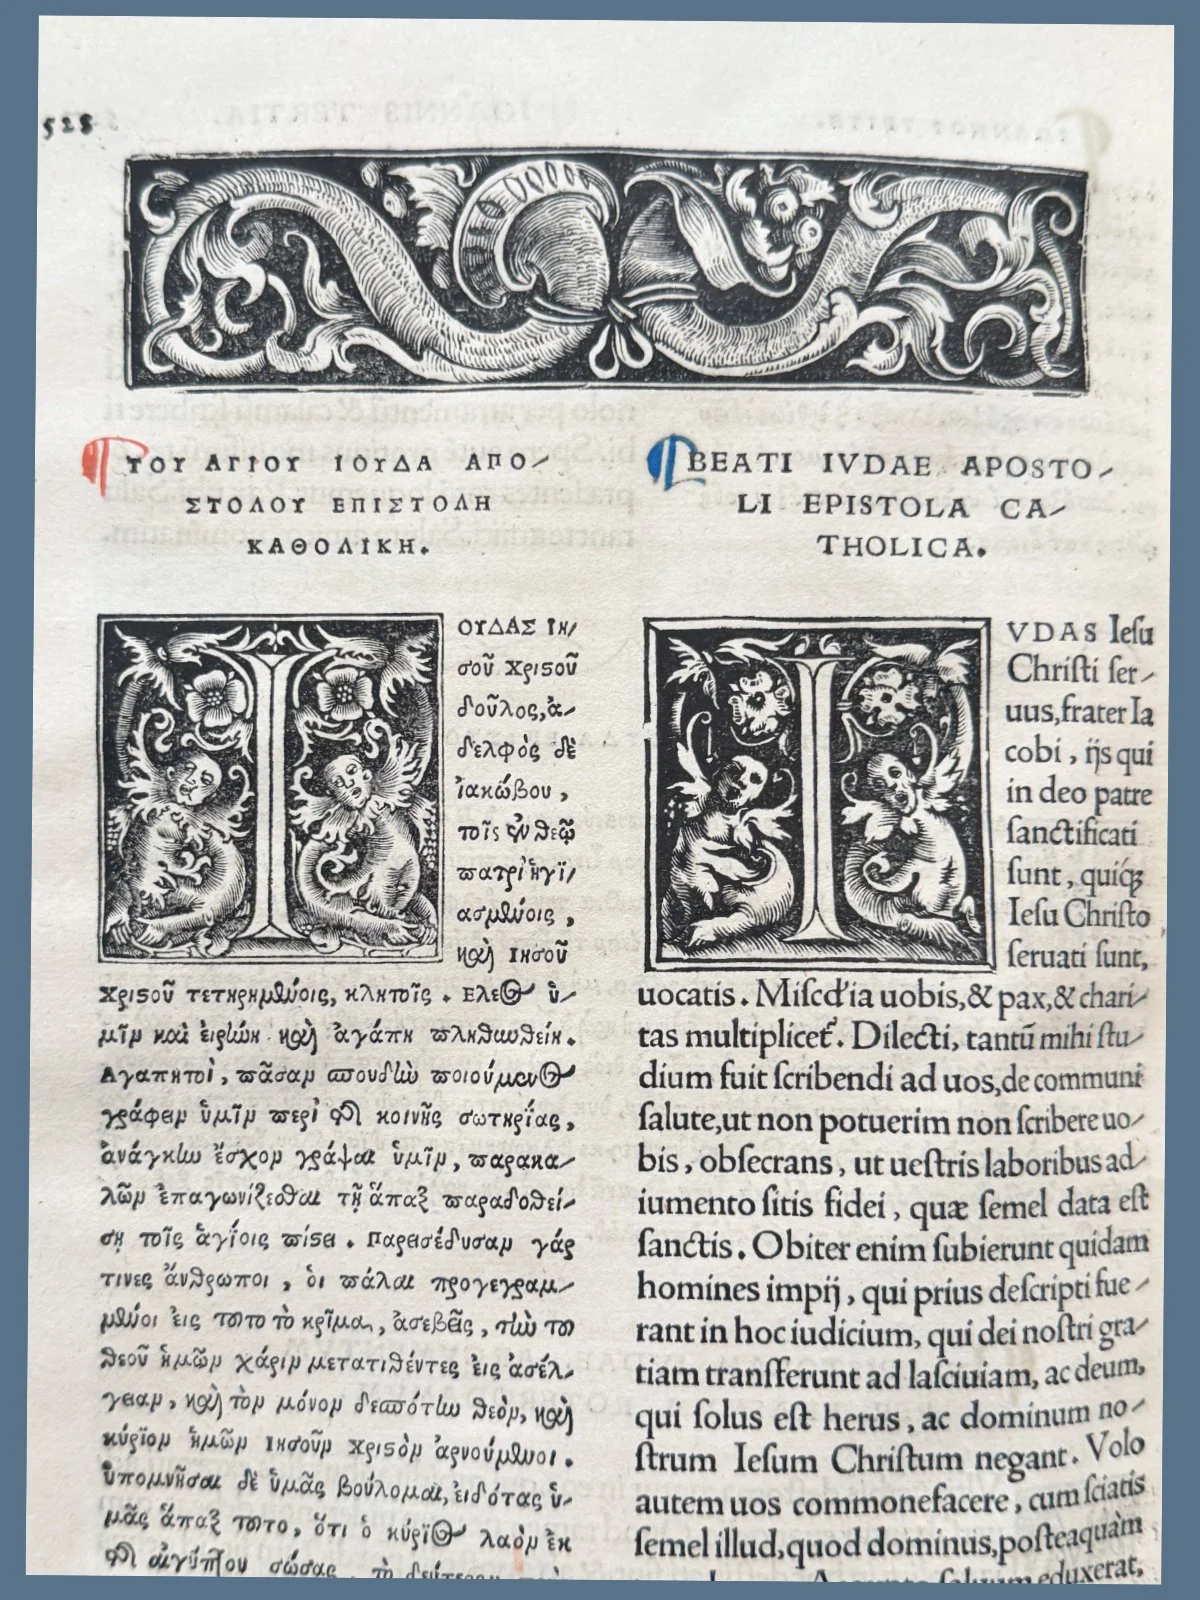 528
ΤΟΥ ΑΓΙΟΥ ΙΟΥΔΑ ΑΠΟ-
ΣΤΟΛΟΥ ΕΠΙΣΤΟΛΗ
ΚΑΘΟΛΙΚΗ.
ΙΟΥΔΑΣ Ἰη/
σοῦ χριϛοῦ
δοῦλος, ἀ-
δελφὸς δὲ
ἰακώβου,
τοῖς ἐν θεῷ
πατρὶ ἡγϊ/
ασμένοις,
καὶ Ιησοῦ
χριϛοῦ τετηρημένοις, κλητοῖς. Ελεος ὑ-
μῖν καὶ εἰρήνη καὶ ἀγάπη πληθυνθείη.
Αγαπητοὶ, πᾶσαν σπουδὴν ποιούμενος
γράφειν ὑμῖν περὶ τῆς κοινῆς σωτηρίας,
ἀνάγκην ἔσχον γράψαι ὑμῖν, παρακα-
λῶν ἐπαγωνίζεσθαι τῇ ἅπαξ παραδοθεί-
σῃ τοῖς ἁγίοις πίϛει. Παρεισέδυσαν γάρ
τινες ἄνθρωποι, ὁι πάλαι προγεγραμ-
μένοι εἰς τοῦτο τὸ κρῖμα, ἀσεβεῖς, τὴν τοῦ
θεοῦ ἡμῶν χάριν μετατιθέντες εἰς ἀσέλ-
γειαν, καὶ τὸν μόνον δεσπότην θεὸν, καὶ
κύριον ἡμῶν Ιησοῦν χριϛὸν ἀρνούμενοι.
ὑπομνῆσαι δὲ ὑμᾶς βούλομαι, εἰδότας ὑ-
μᾶς ἅπαξ τοῦτο, ὅτι ὁ κύριος λαὸν ἐκ
τῆς αἰγύπτου σώσας, τὸ δεύτερον
BEATI IVDAE APOSTO-
LI EPISTOLA CA-
THOLICA.
IVDAS Ieſu
Chriſti ſer-
uus, frater Ia
cobi, ijs qui
in deo patre
ſanctificati
ſunt, quiꝗ́ꝫ
Ieſu Chriſto
ſeruati ſunt,
uocatis. Miſcd'ia uobis, & pax, & chari-
tas multiplicet̃. Dilecti, tantū mihi ſtu-
dium fuit ſcribendi ad uos, de communi
ſalute, ut non potuerim non ſcribere uo-
bis, obſecrans, ut ueſtris laboribus ad-
iumento ſitis fidei, quæ ſemel data eſt
ſanctis. Obiter enim ſubierunt quidam
homines impij, qui prius deſcripti fue-
rant in hoc iudicium, qui dei noſtri gra-
tiam transferunt ad laſciuiam, ac deum,
qui ſolus eſt herus, ac dominum no-
ſtrum Ieſum Chriſtum negant. Volo
autem uos commonefacere, cum ſciatis
ſemel illud, quod dominus, poſteaquàm
eduxerat,